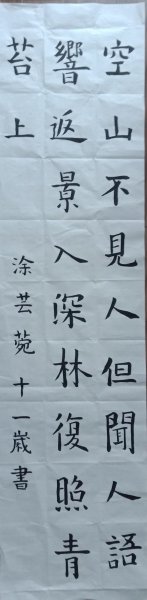 空山不見人但聞人語
響返景入深林復照青
苔上
涂芸菀十一歲書